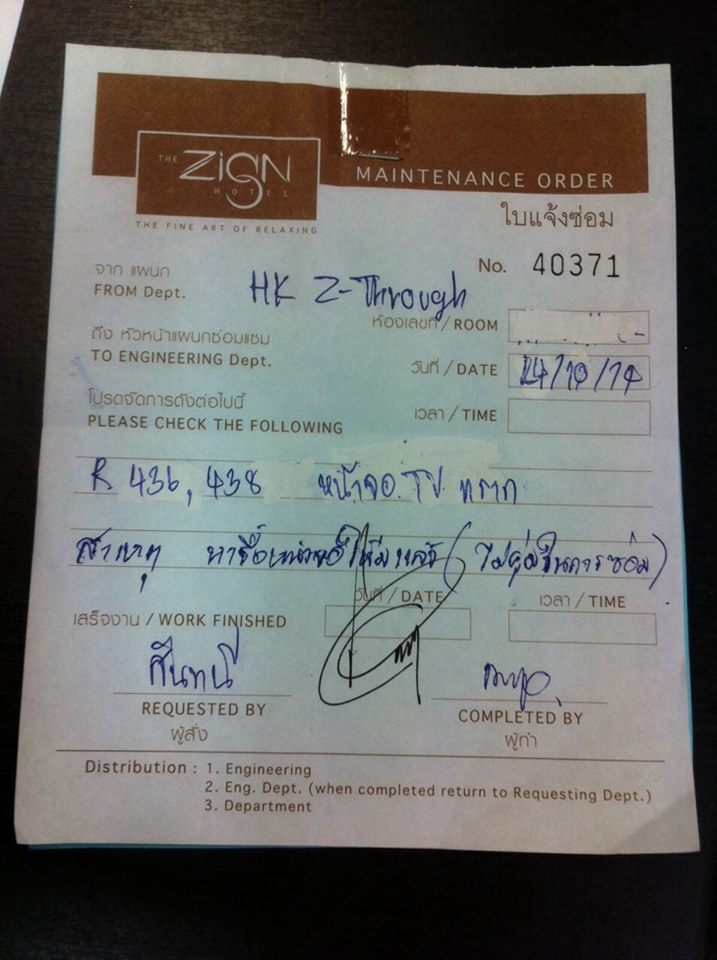 THE ZIGN HOTEL
THE FINE ART OF RELAXING
MAINTENANCE ORDER
ใบแจ้งซ่อม
จาก แผนก
FROM Dept.
HK Z-Through
No. 40371
ถึง หัวหน้าแผนกซ่อมแซม
TO ENGINEERING Dept.
ห้องเลขที่ / ROOM
วันที่ / DATE 24/10/14
โปรดจัดการดังต่อไปนี้
PLEASE CHECK THE FOLLOWING
เวลา / TIME
R 436, 438 หน้าจอ TV แตก
สาเหตุ (ไม่คุ้มในการซ่อม)
เสร็จงาน / WORK FINISHED
วันที่ / DATE
เวลา / TIME
REQUESTED BY
ผู้สั่ง
COMPLETED BY
ผู้ทำ
Distribution : 1. Engineering
2. Eng. Dept. (when completed return to Requesting Dept.)
3. Department